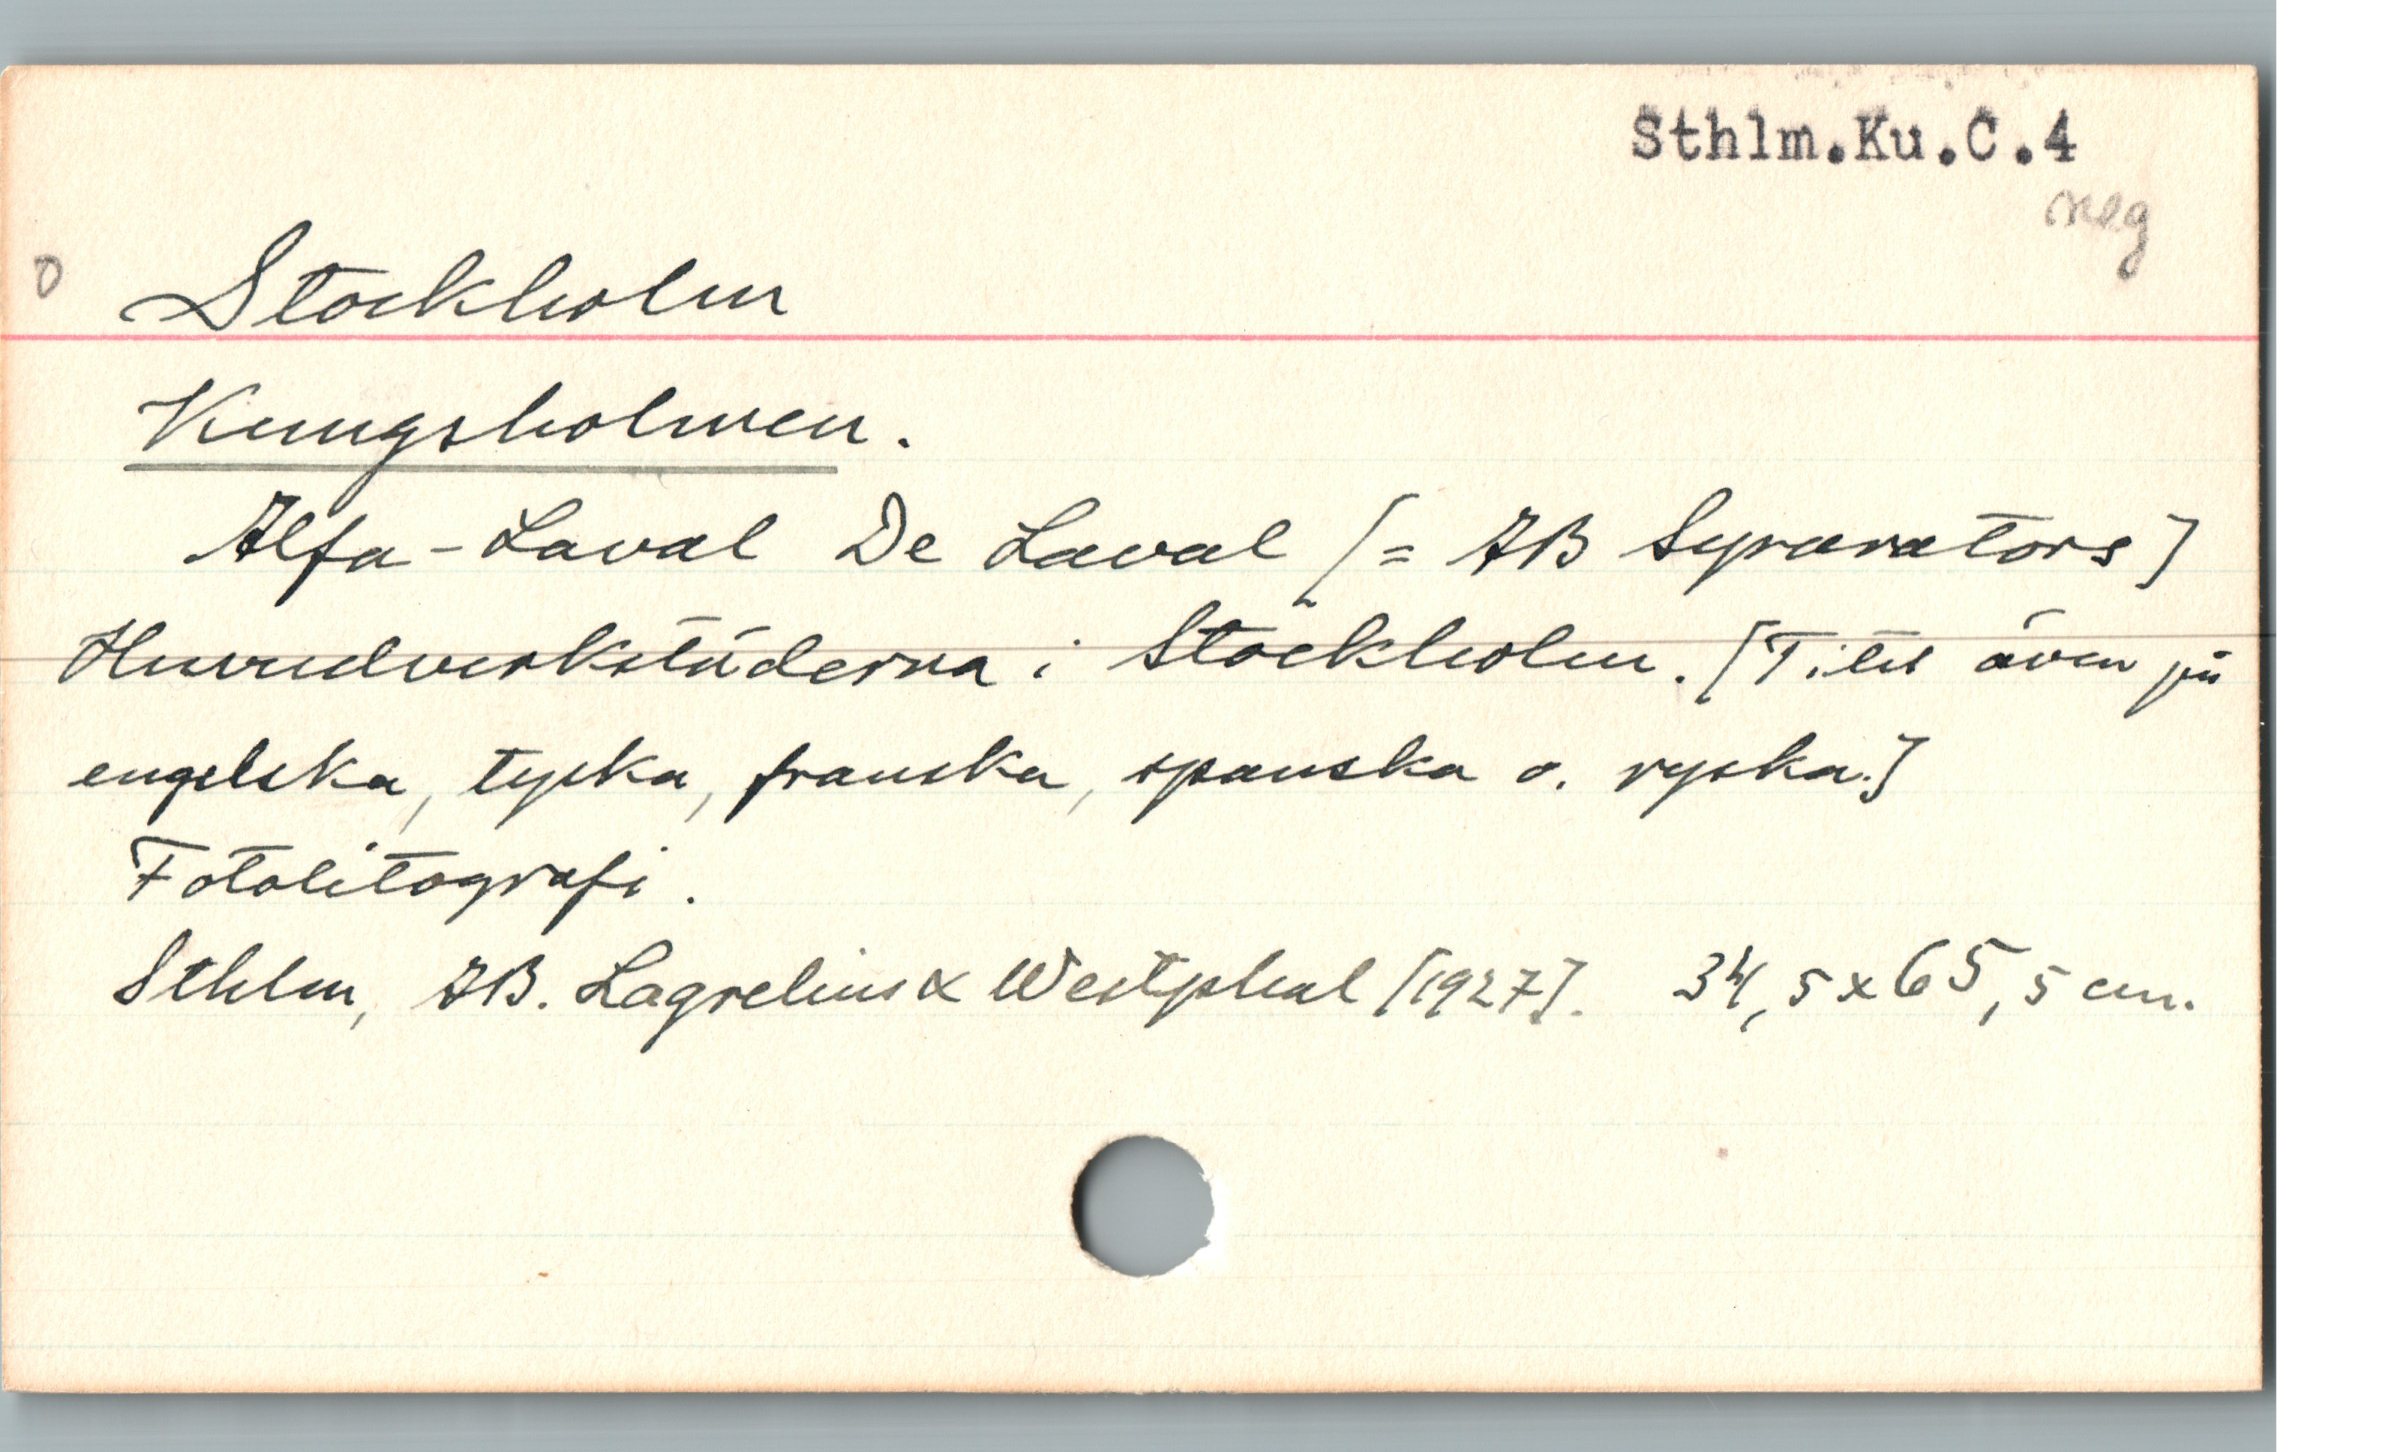 Sthlm.Ku.C.4
neg
o Stockholm
Kungsholmen.
Alfa-Laval De Laval [= AB Separators]
Huvudverkstäderna i Stockholm. [Titel även på
engelska, tyska, franska, spanska o. ryska.]
Fotolitografi.
Sthlm, AB. Lagrelius & Westphal [1927]. 34,5 x 65,5 cm.